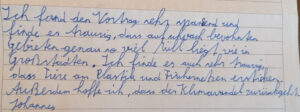 Ich fand den Vortrag sehr spanend und
finde es traurig, dass auf einfach bewohnten
Gebieten genau so viel Müll liegt wie in
Großstädten. Ich finde es auch sehr traurig,
dass Tiere an Plastik und Fischernetzen ersticken.
Außerdem hoffe ich, dass der Klimawandel zurückgeht.
Johannes